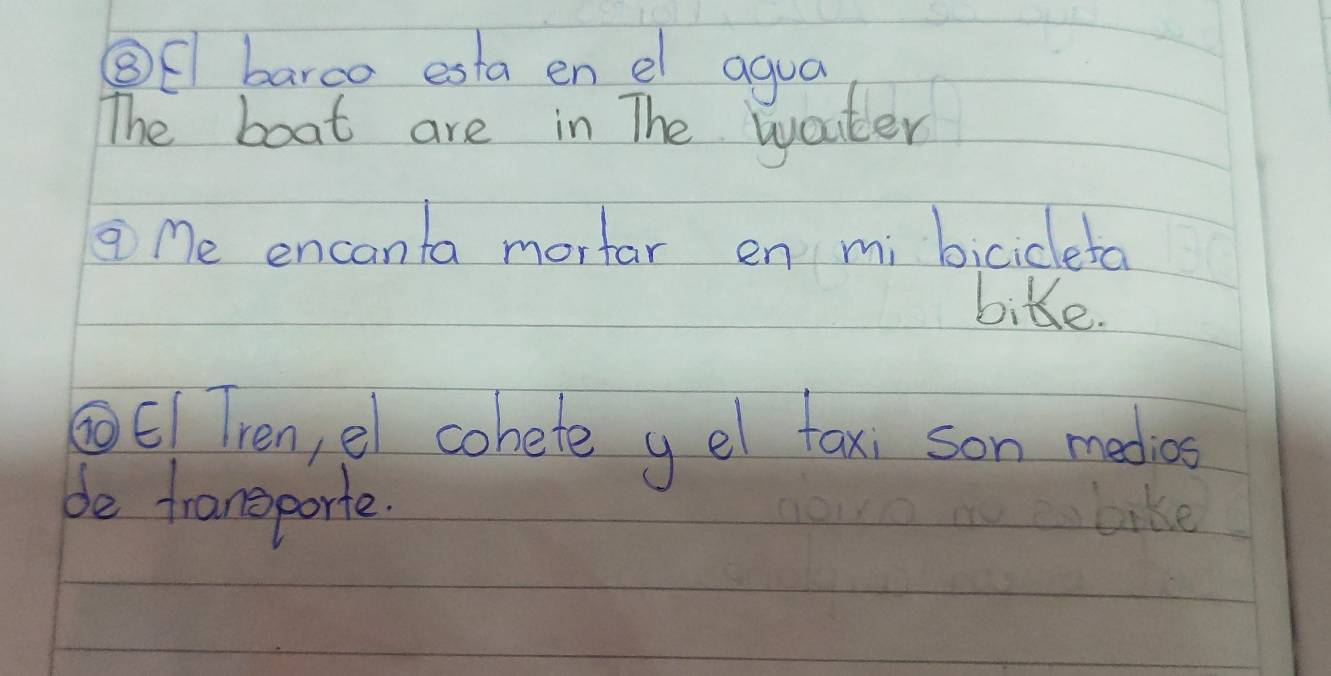 ⑧ El barco esta en el agua
The boat are in The wyater
⑨ Me encanta mortar en mi bicicleta
bike.
⑩ El Tren, el cohete y el taxi son medios
de transporte.
bike